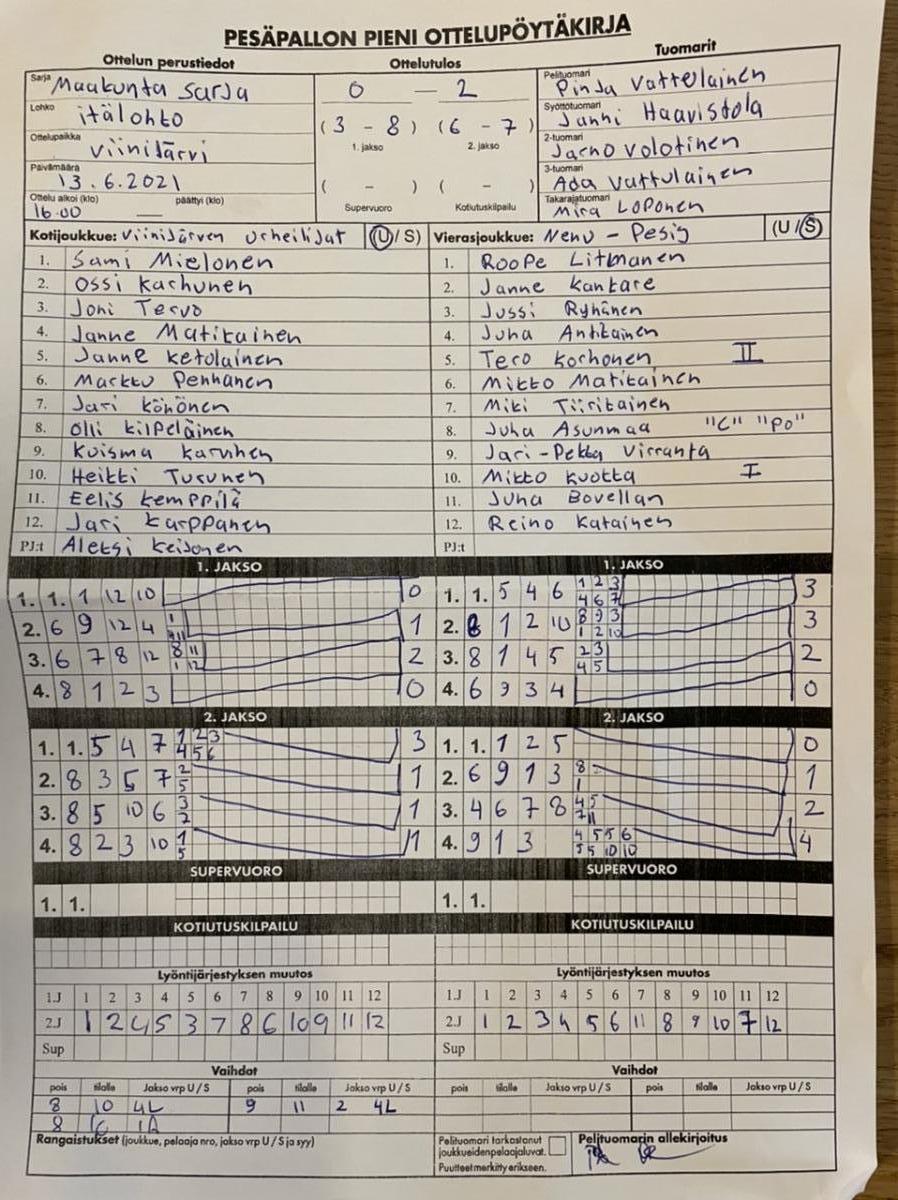 PESÄPALLON PIENI OTTELUPÖYTÄKIRJA
Ottelun perustiedot Ottelutulos Tuomarit
Sarja Maakunta sarja 0 — 2 Pelituomari Pinja Vattulainen
Lohko itälohko Syöttötuomari Janni Haavistola
Ottelupaikka Viinijärvi (3 - 8) (6 - 7) 2-tuomari Jarno Volotinen
1. jakso 2. jakso
Päivämäärä 13.6.2021 3-tuomari Ada Vattulainen
Ottelu alkoi (klo) päättyi (klo) ( - ) ( - ) Takarajatuomari
16.00 — Supervuoro Kotiutuskilpailu Mira Loponen
Kotijoukkue: Viinijärven Urheilijat (U/S) Vierasjoukkue: Nenu - Pesis (U/S)
1. Sami Mielonen 1. Roope Litmanen
2. Ossi Karhunen 2. Janne Kankare
3. Joni Tervo 3. Jussi Ryhänen
4. Janne Matikainen 4. Juha Antikainen
5. Janne Ketolainen 5. Tero Korhonen II
6. Markku Penhanen 6. Mikko Matikainen
7. Jari Könönen 7. Miki Tiirikainen
8. Olli Kilpeläinen 8. Juha Asunmaa "C" "PO"
9. Kuisma Karvinen 9. Jari-Pekka Virranta
10. Heikki Turunen 10. Mikko Kuokka I
11. Eelis Kemppilä 11. Juha Bovellan
12. Jari Karppanen 12. Reino Katainen
PJ:t Aleksi Keisonen PJ:t
1. JAKSO 1. JAKSO
1. 1. 1 12 10 0 1. 1. 5 4 6 1 2 3 3
4 6 7
2. 6 9 12 4 1 1 2. 8 1 2 10 8 9 3 3
11 1 2 10
3. 6 7 8 12 8 11 2 3. 8 1 4 5 2 3 2
1 12 4 5
4. 8 1 2 3 0 4. 6 9 3 4 0
2. JAKSO 2. JAKSO
1. 1. 5 4 7 1 2 3 3 1. 1. 1 2 5 0
4 5 6
2. 8 3 5 7 2 1 2. 6 9 1 3 8 1
5 1
3. 8 5 10 6 3 1 3. 4 6 7 8 4 5 2
2 7 11
4. 8 2 3 10 1 1 4. 9 1 3 4 5 5 6 4
5 5 5 10 10
SUPERVUORO SUPERVUORO
1. 1. 1. 1.
KOTIUTUSKILPAILU KOTIUTUSKILPAILU
Lyöntijärjestyksen muutos Lyöntijärjestyksen muutos
1.J 1 2 3 4 5 6 7 8 9 10 11 12 1.J 1 2 3 4 5 6 7 8 9 10 11 12
2.J 1 2 4 5 3 7 8 6 10 9 11 12 2.J 1 2 3 4 5 6 11 8 9 10 7 12
Sup Sup
Vaihdot Vaihdot
pois tilalle Jakso vrp U / S pois tilalle Jakso vrp U / S pois tilalle Jakso vrp U / S pois tilalle Jakso vrp U / S
8 10 4L 9 11 2 4L
8
Rangaistukset (joukkue, pelaaja nro, jakso vrp U / S ja syy) Pelituomari tarkastanut Pelituomarin allekirjoitus
joukkueidenpelaajaluvat.
Puutteet merkitty erikseen.